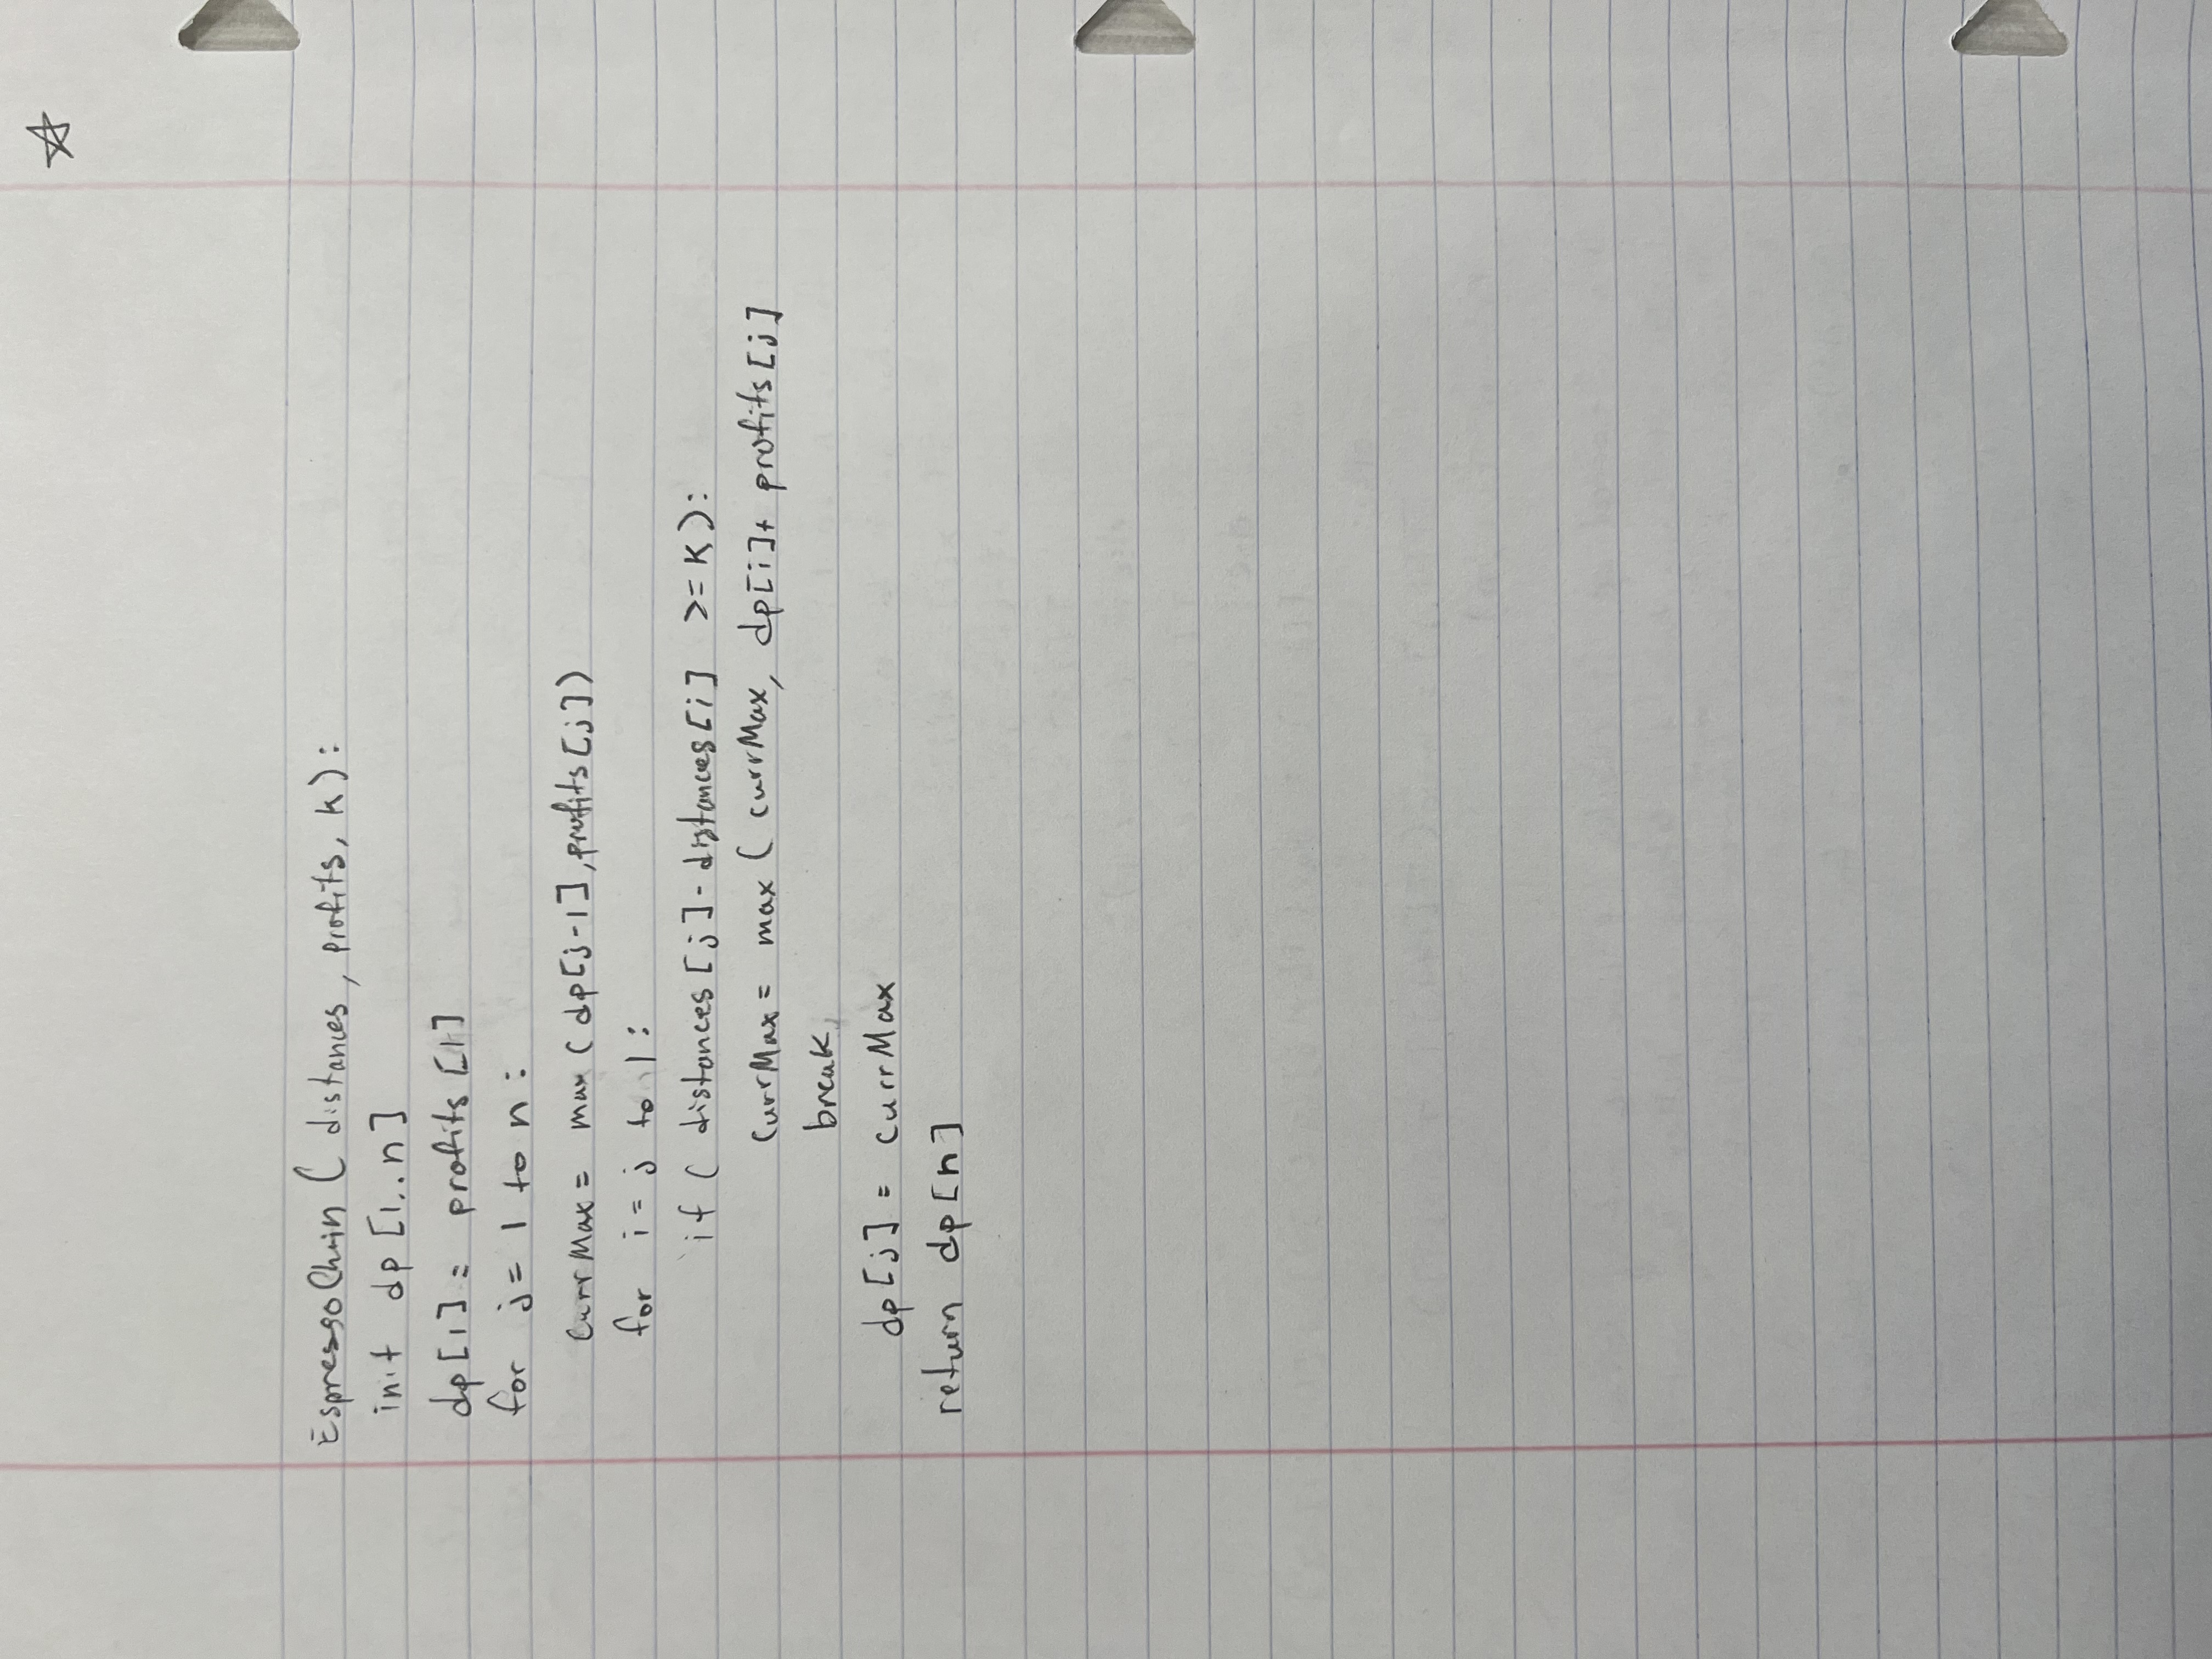 EspressoChain ( distances, profits, k):
init dp [1..n]
dp[1] = profits [1]
for j = 1 to n:
currMax = max ( dp[j-1], profits [j])
for i = j to 1:
if ( distances [j] - distances [i] >= K):
currMax = max ( currMax, dp[i] + profits [j]
break
dp[j] = currMax
return dp[n]